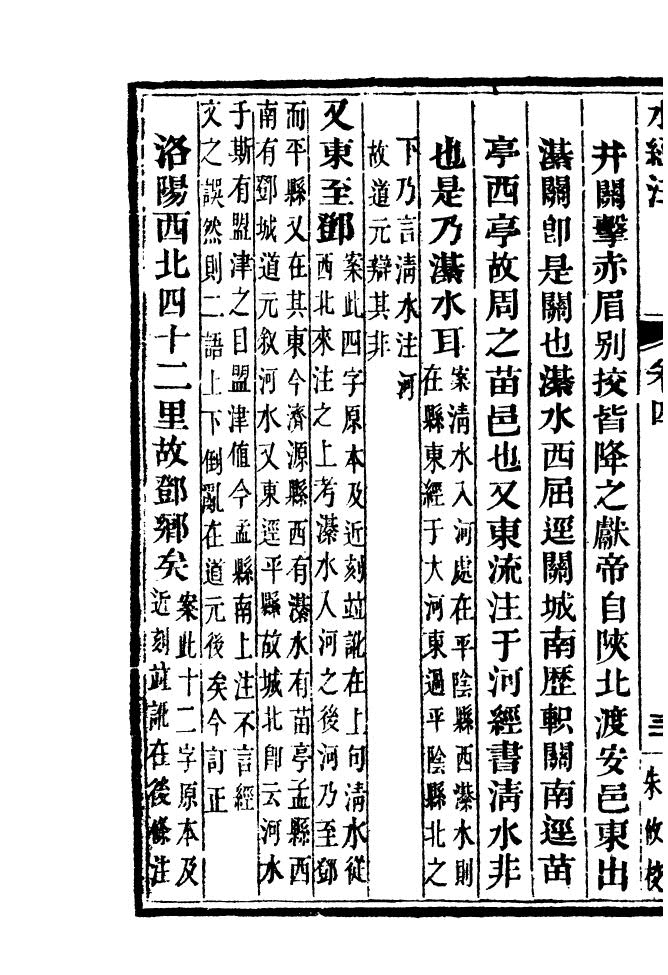 水經注
卷四
三
朱攸校
井關擊赤眉別挍皆降之獻帝自陝北渡安邑東出
濝關卽是關也濝水西屈逕關城南歷軹關南逕苗
亭西亭故周之苗邑也又東流注于河經書清水非
也是乃濝水耳
案清水入河處在平陰縣西濝水則
在縣東經于大河東過平陰縣北之
下乃言清水注河
故道元辯其非
又東至鄧
案此四字原本及近刻竝訛在上句清水從
西北來注之上考濝水入河之後河乃至鄧
而平縣又在其東今濟源縣西有濝水有苗亭孟縣西
南有鄧城道元敘河水又東逕平縣故城北卽云河水
于斯有盟津之目盟津值今孟縣南上注不言經
文之誤然則二語上下倒亂在道元後矣今訂正
洛陽西北四十二里故鄧鄉矣
案此十二字原本及
近刻竝訛在後條注